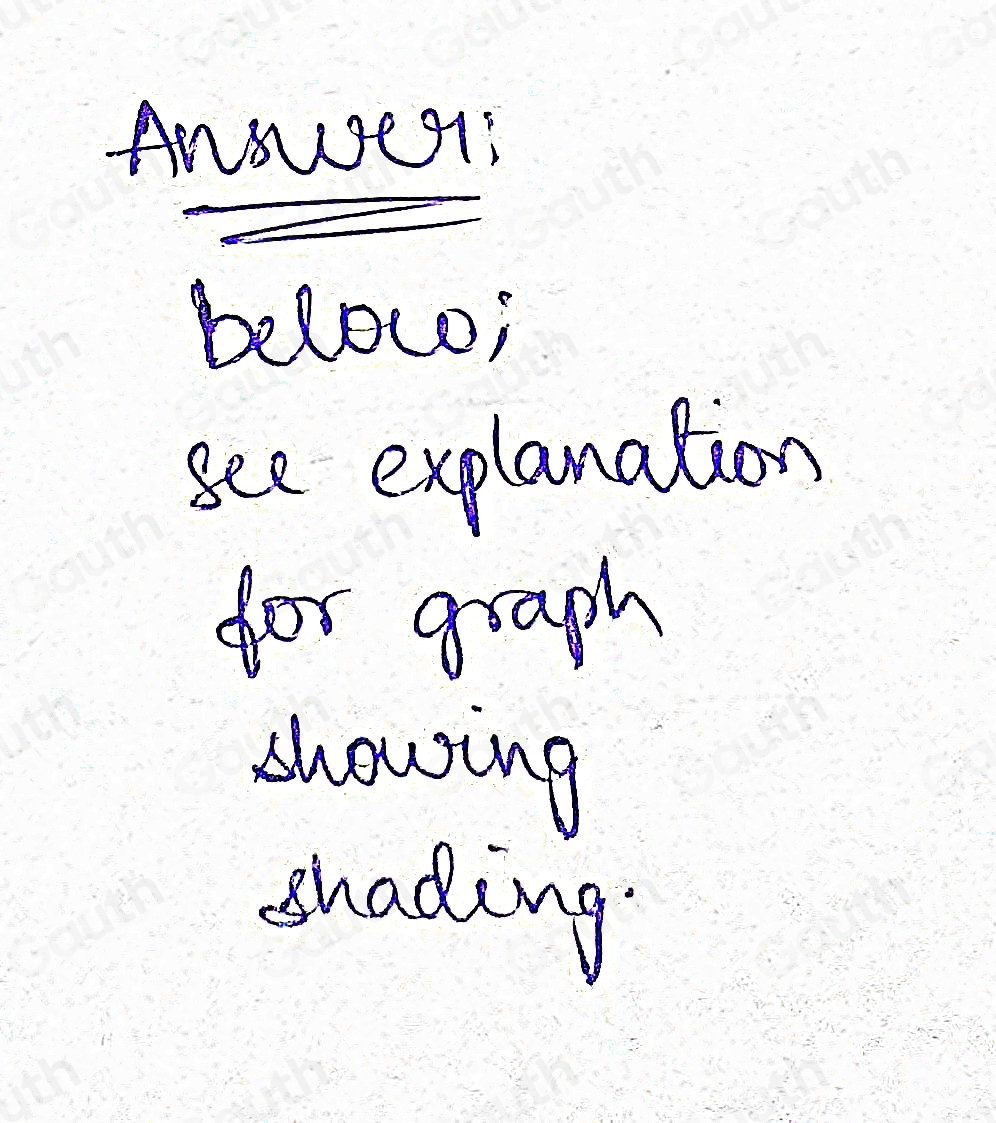 Answer:
below;
see explanation
for graph
showing
shading.